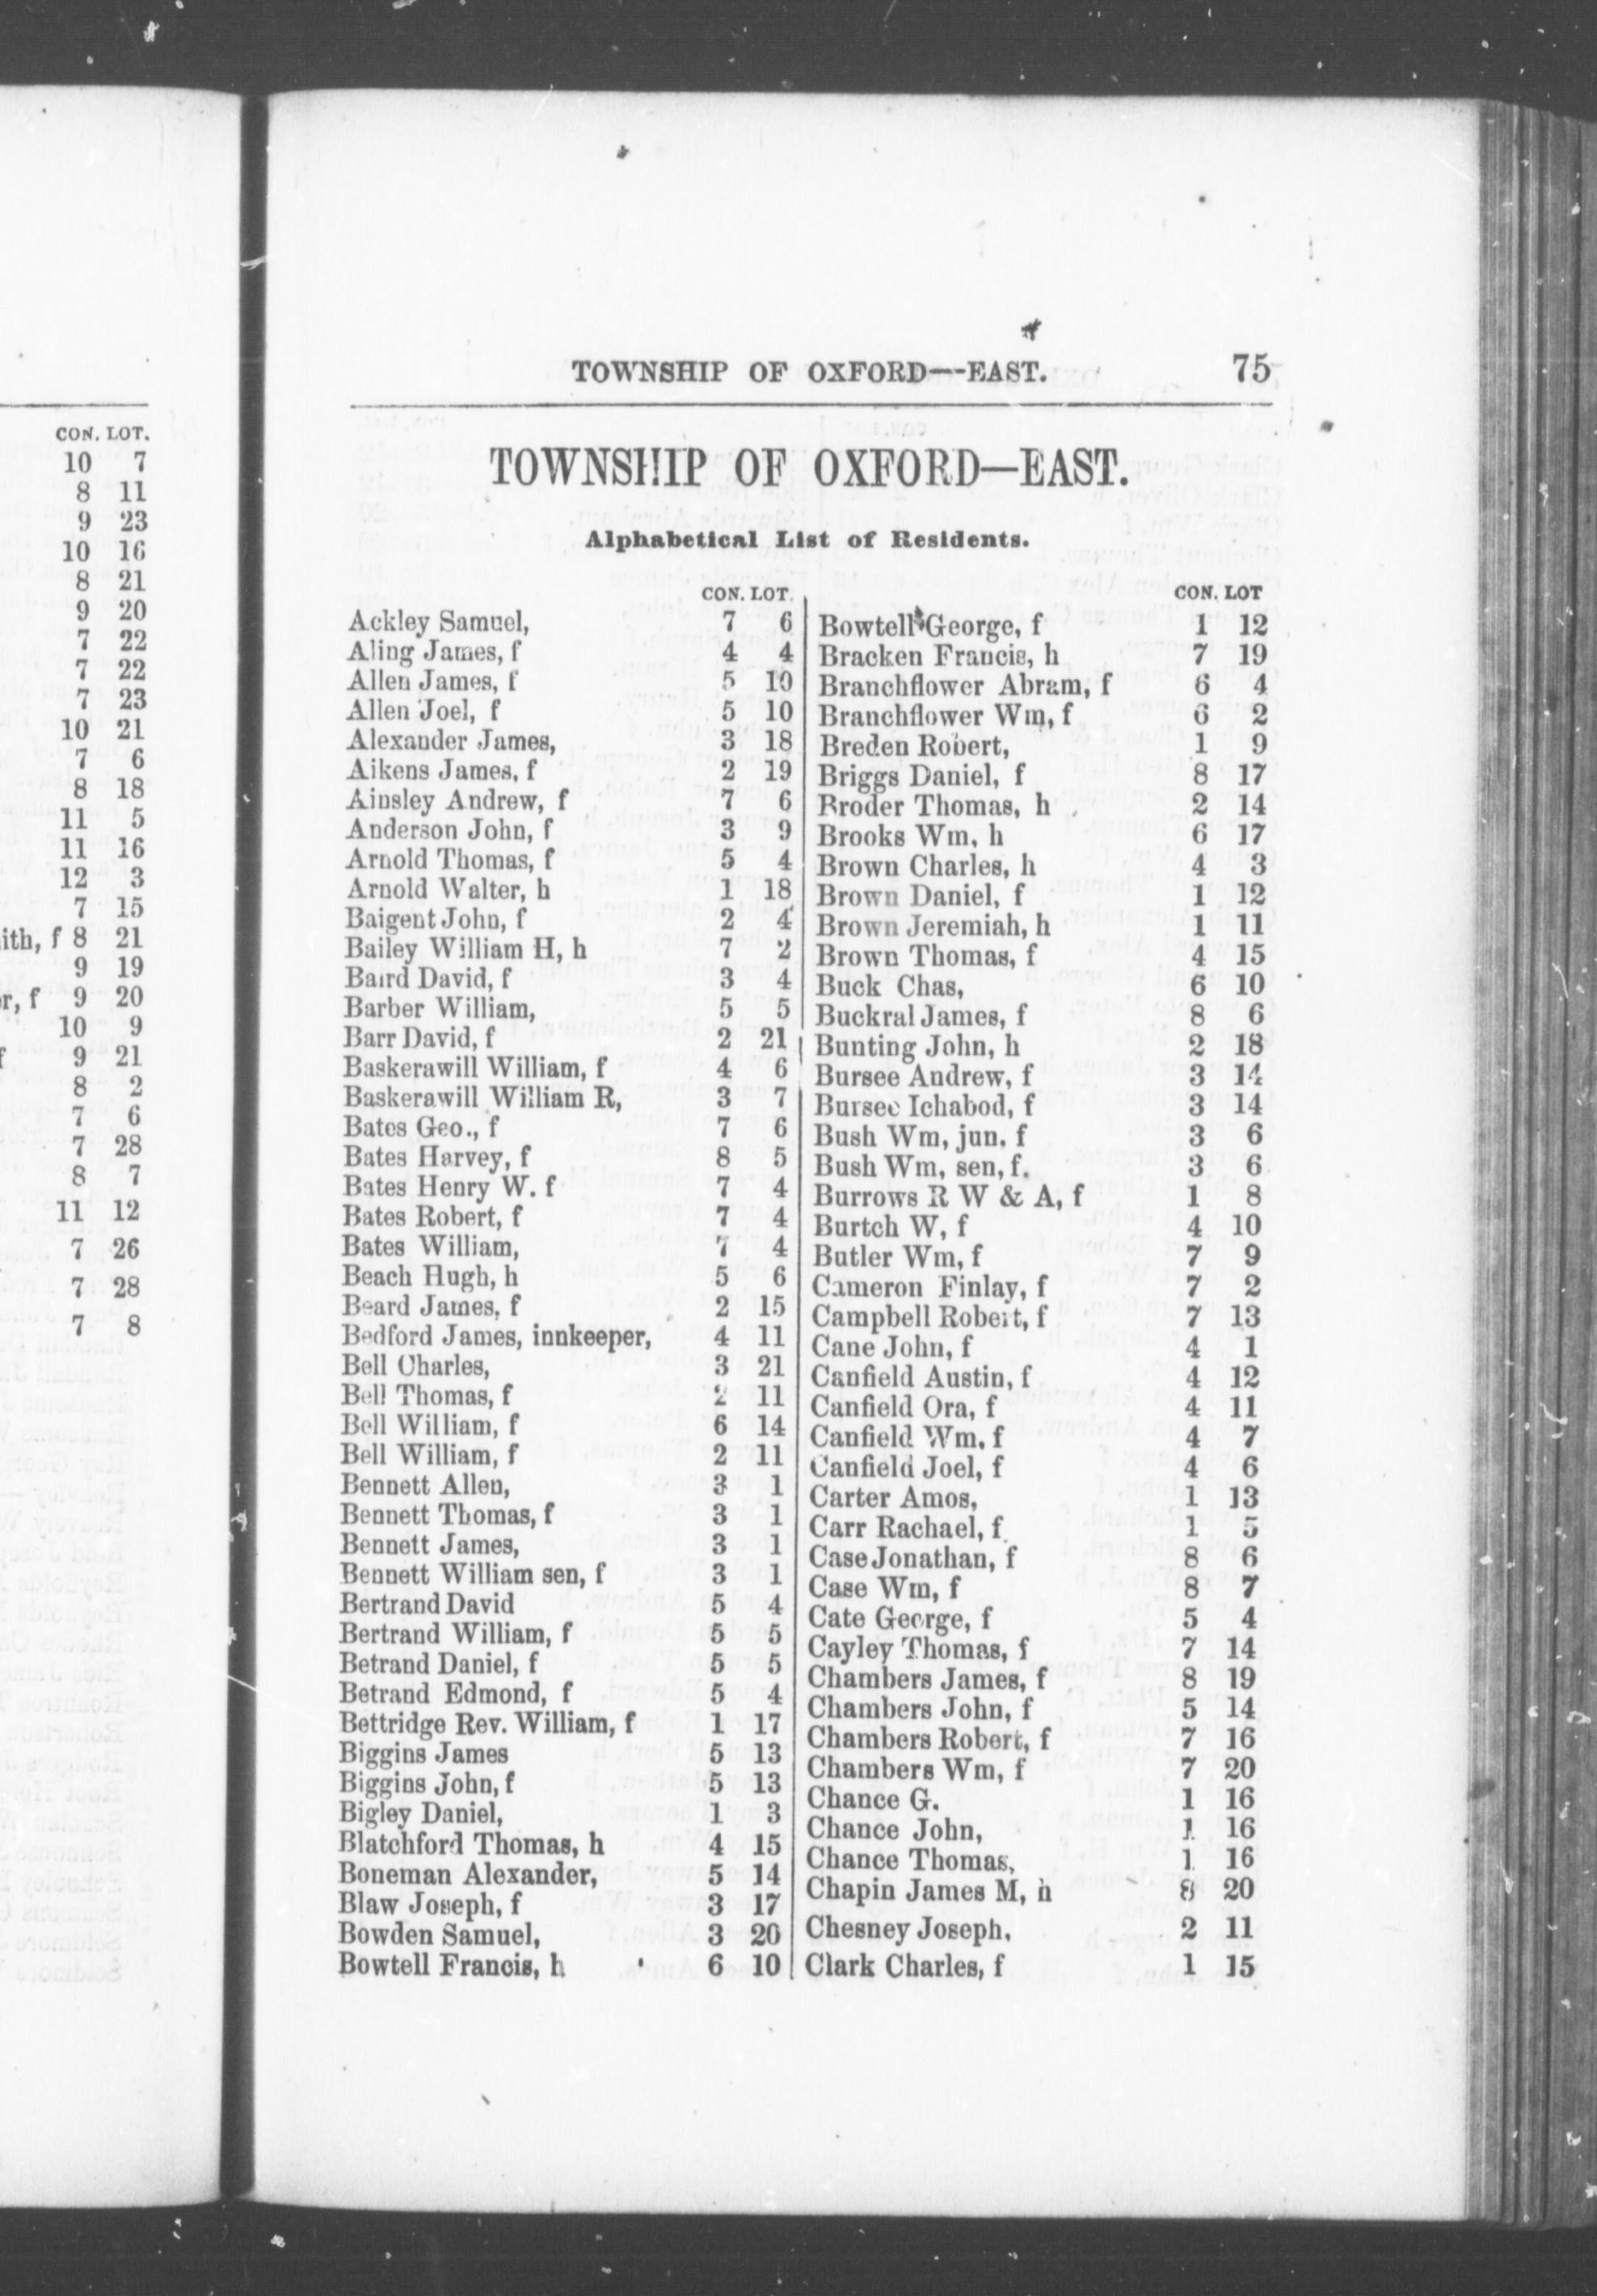 CON. LOT.
10 7
8 11
9 23
10 16
8 21
9 20
7 22
7 22
7 23
10 21
7 6
8 18
11 5
11 16
12 3
7 15
ith, f 8 21
9 19
r, f 9 20
10 9
f 9 21
8 2
7 6
7 28
8 7
11 12
7 26
7 28
7 8
TOWNSHIP OF OXFORD—EAST. 75
TOWNSHIP OF OXFORD—EAST.
Alphabetical List of Residents.
CON. LOT.
Ackley Samuel, 7 6
Aling James, f 4 4
Allen James, f 5 10
Allen Joel, f 5 10
Alexander James, 3 18
Aikens James, f 2 19
Ainsley Andrew, f 7 6
Anderson John, f 3 9
Arnold Thomas, f 5 4
Arnold Walter, h 1 18
Baigent John, f 2 4
Bailey William H, h 7 2
Baird David, f 3 4
Barber William, 5 5
Barr David, f 2 21
Baskerawill William, f 4 6
Baskerawill William R, 3 7
Bates Geo., f 7 6
Bates Harvey, f 8 5
Bates Henry W. f 7 4
Bates Robert, f 7 4
Bates William, 7 4
Beach Hugh, h 5 6
Beard James, f 2 15
Bedford James, innkeeper, 4 11
Bell Charles, 3 21
Bell Thomas, f 2 11
Bell William, f 6 14
Bell William, f 2 11
Bennett Allen, 3 1
Bennett Thomas, f 3 1
Bennett James, 3 1
Bennett William sen, f 3 1
Bertrand David 5 4
Bertrand William, f 5 5
Betrand Daniel, f 5 5
Betrand Edmond, f 5 4
Bettridge Rev. William, f 1 17
Biggins James 5 13
Biggins John, f 5 13
Bigley Daniel, 1 3
Blatchford Thomas, h 4 15
Boneman Alexander, 5 14
Blaw Joseph, f 3 17
Bowden Samuel, 3 20
Bowtell Francis, h 6 10
CON. LOT
Bowtell George, f 1 12
Bracken Francis, h 7 19
Branchflower Abram, f 6 4
Branchflower Wm, f 6 2
Breden Robert, 1 9
Briggs Daniel, f 8 17
Broder Thomas, h 2 14
Brooks Wm, h 6 17
Brown Charles, h 4 3
Brown Daniel, f 1 12
Brown Jeremiah, h 1 11
Brown Thomas, f 4 15
Buck Chas, 6 10
Buckral James, f 8 6
Bunting John, h 2 18
Bursee Andrew, f 3 14
Bursee Ichabod, f 3 14
Bush Wm, jun. f 3 6
Bush Wm, sen, f. 3 6
Burrows R W & A, f 1 8
Burtch W, f 4 10
Butler Wm, f 7 9
Cameron Finlay, f 7 2
Campbell Robert, f 7 13
Cane John, f 4 1
Canfield Austin, f 4 12
Canfield Ora, f 4 11
Canfield Wm, f 4 7
Canfield Joel, f 4 6
Carter Amos, 1 13
Carr Rachael, f 1 5
Case Jonathan, f 8 6
Case Wm, f 8 7
Cate George, f 5 4
Cayley Thomas, f 7 14
Chambers James, f 8 19
Chambers John, f 5 14
Chambers Robert, f 7 16
Chambers Wm, f 7 20
Chance G. 1 16
Chance John, 1 16
Chance Thomas, 1 16
Chapin James M, h 8 20
Chesney Joseph, 2 11
Clark Charles, f 1 15